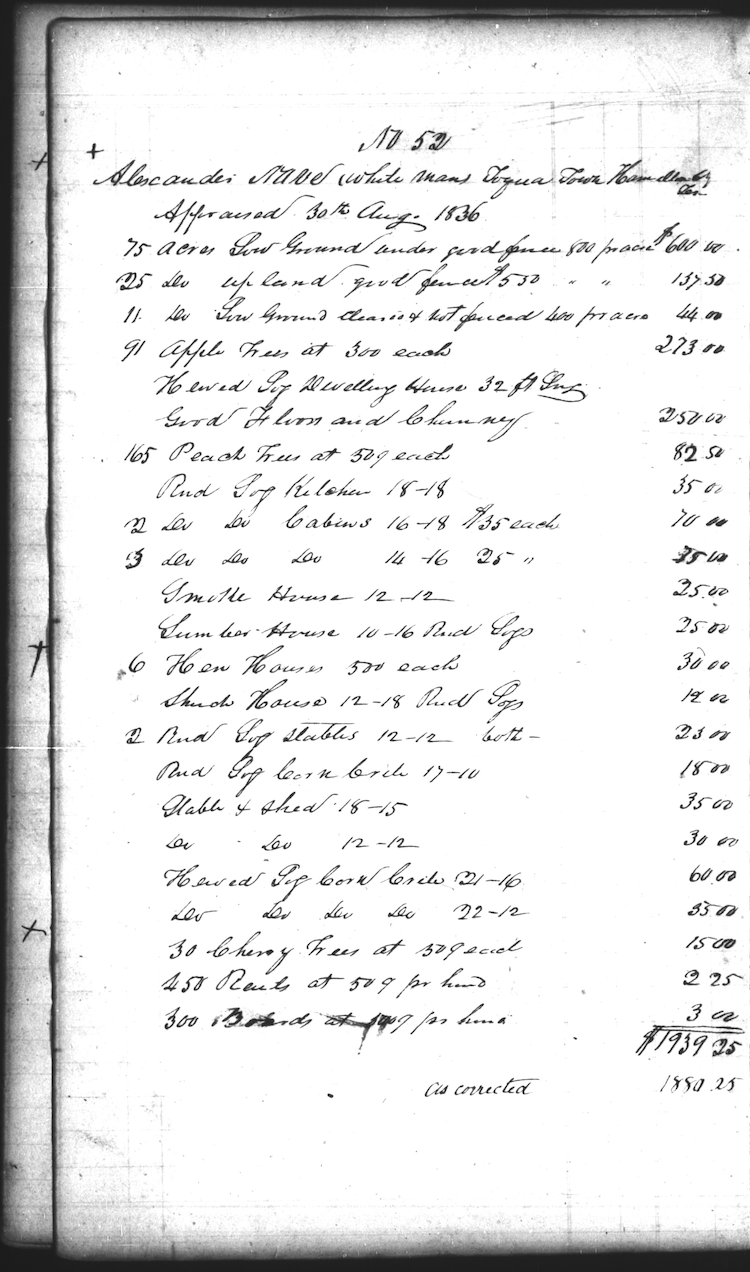 No 52
Alexander Nave (white man) Toqua Town Hamilton Cy Ten
Appraised 30th Aug. 1836
75 acres Low Ground under good fence 800 pr acre $600 00
25 Do upland good fence $5 50 " " 137.50
11 Do Low Ground cleared & not fenced 400 pr acre 44 00
91 Apple Trees at 300 each 273 00
Hewed Log Dwelling House 32 ft Long
Good Floor and Chimney 250 00
165 Peach Trees at 50¢ each 82 50
Rnd Log Kitchen 18-18 35 00
2 Do Do Cabins 16-18 $35 each 70 00
3 Do Do Do 14-16 25 " 75 00
Smoke House 12-12 25.00
Lumber House 10-16 Rnd Logs 25 00
6 Hen Houses 500 each 30 00
Shuck House 12-18 Rnd Logs 12 00
2 Rnd Log Stables 12-12 both - 23 00
Rnd Log Corn Crib 17-10 18 00
Stable & Shed 18-15 35 00
Do Do 12-12 30 00
Hewed Log Corn Crib 21-16 60.00
Do Do Do Do 22-12 35 00
30 Cherry Trees at 50¢ each 15 00
450 Rails at 50¢ pr hund 2 25
300 Boards at pr hund 3 00
$1939 25
as corrected 1880.25